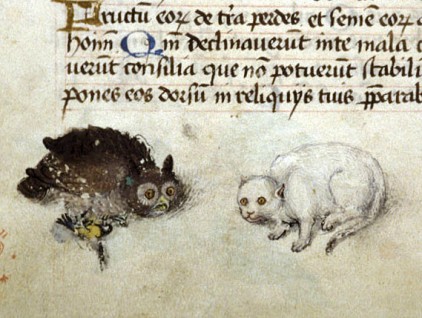 Fructū eoꝝ de tr̄a perdes et semē eoꝝ
hoīm Qm̄ declinaverūt in te mala
verūt consilia que nō potuerūt stabili
pones eos dorsū in reliquijs tuis p̄parab